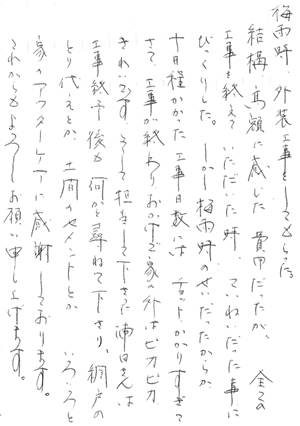 梅雨時、外装工事をしてもらった。
結構、高額に感じた費用だったが、全ての
工事を終えていただいた時、ていねいだった事に
びっくりした。しかし梅雨時のせいだったからか
十日程かかった工事日数には ちょっとかかりすぎて
さて、工事が終わりおかげで家の外はピカピカ
きれいです。そして担当して下さった浦田さんは
工事終了後も何かと尋ねて下さり、網戸の
とり代えとか、土間のセメントとか いろいろと
家のアフターケアに感謝しております。
これからもよろしくお願い申し上げます。